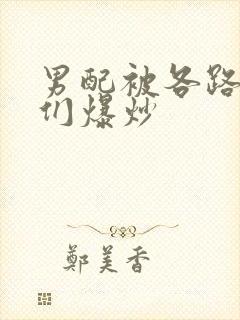 男配被各路
们爆炒
鄭美香